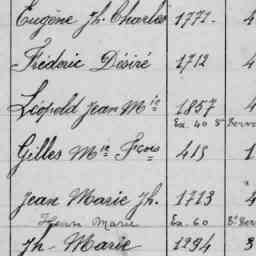 Eugène Jh. Charles 1771. 4
Frédéric Désiré 1712 4
Léopold Jean Mie 1857 4
Ex. 40 5
Gilles Mie Fcois 415 1
Jean Marie Jh. 1713 4
Henri Marie Ex. 60
Jh. Marie 1294 3